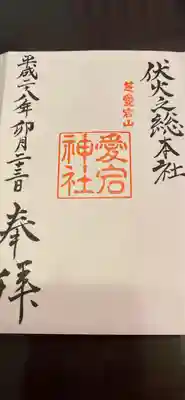 伏火之総本社
芝愛宕山
愛宕
神社
平成二八年卯月二三日
奉拝